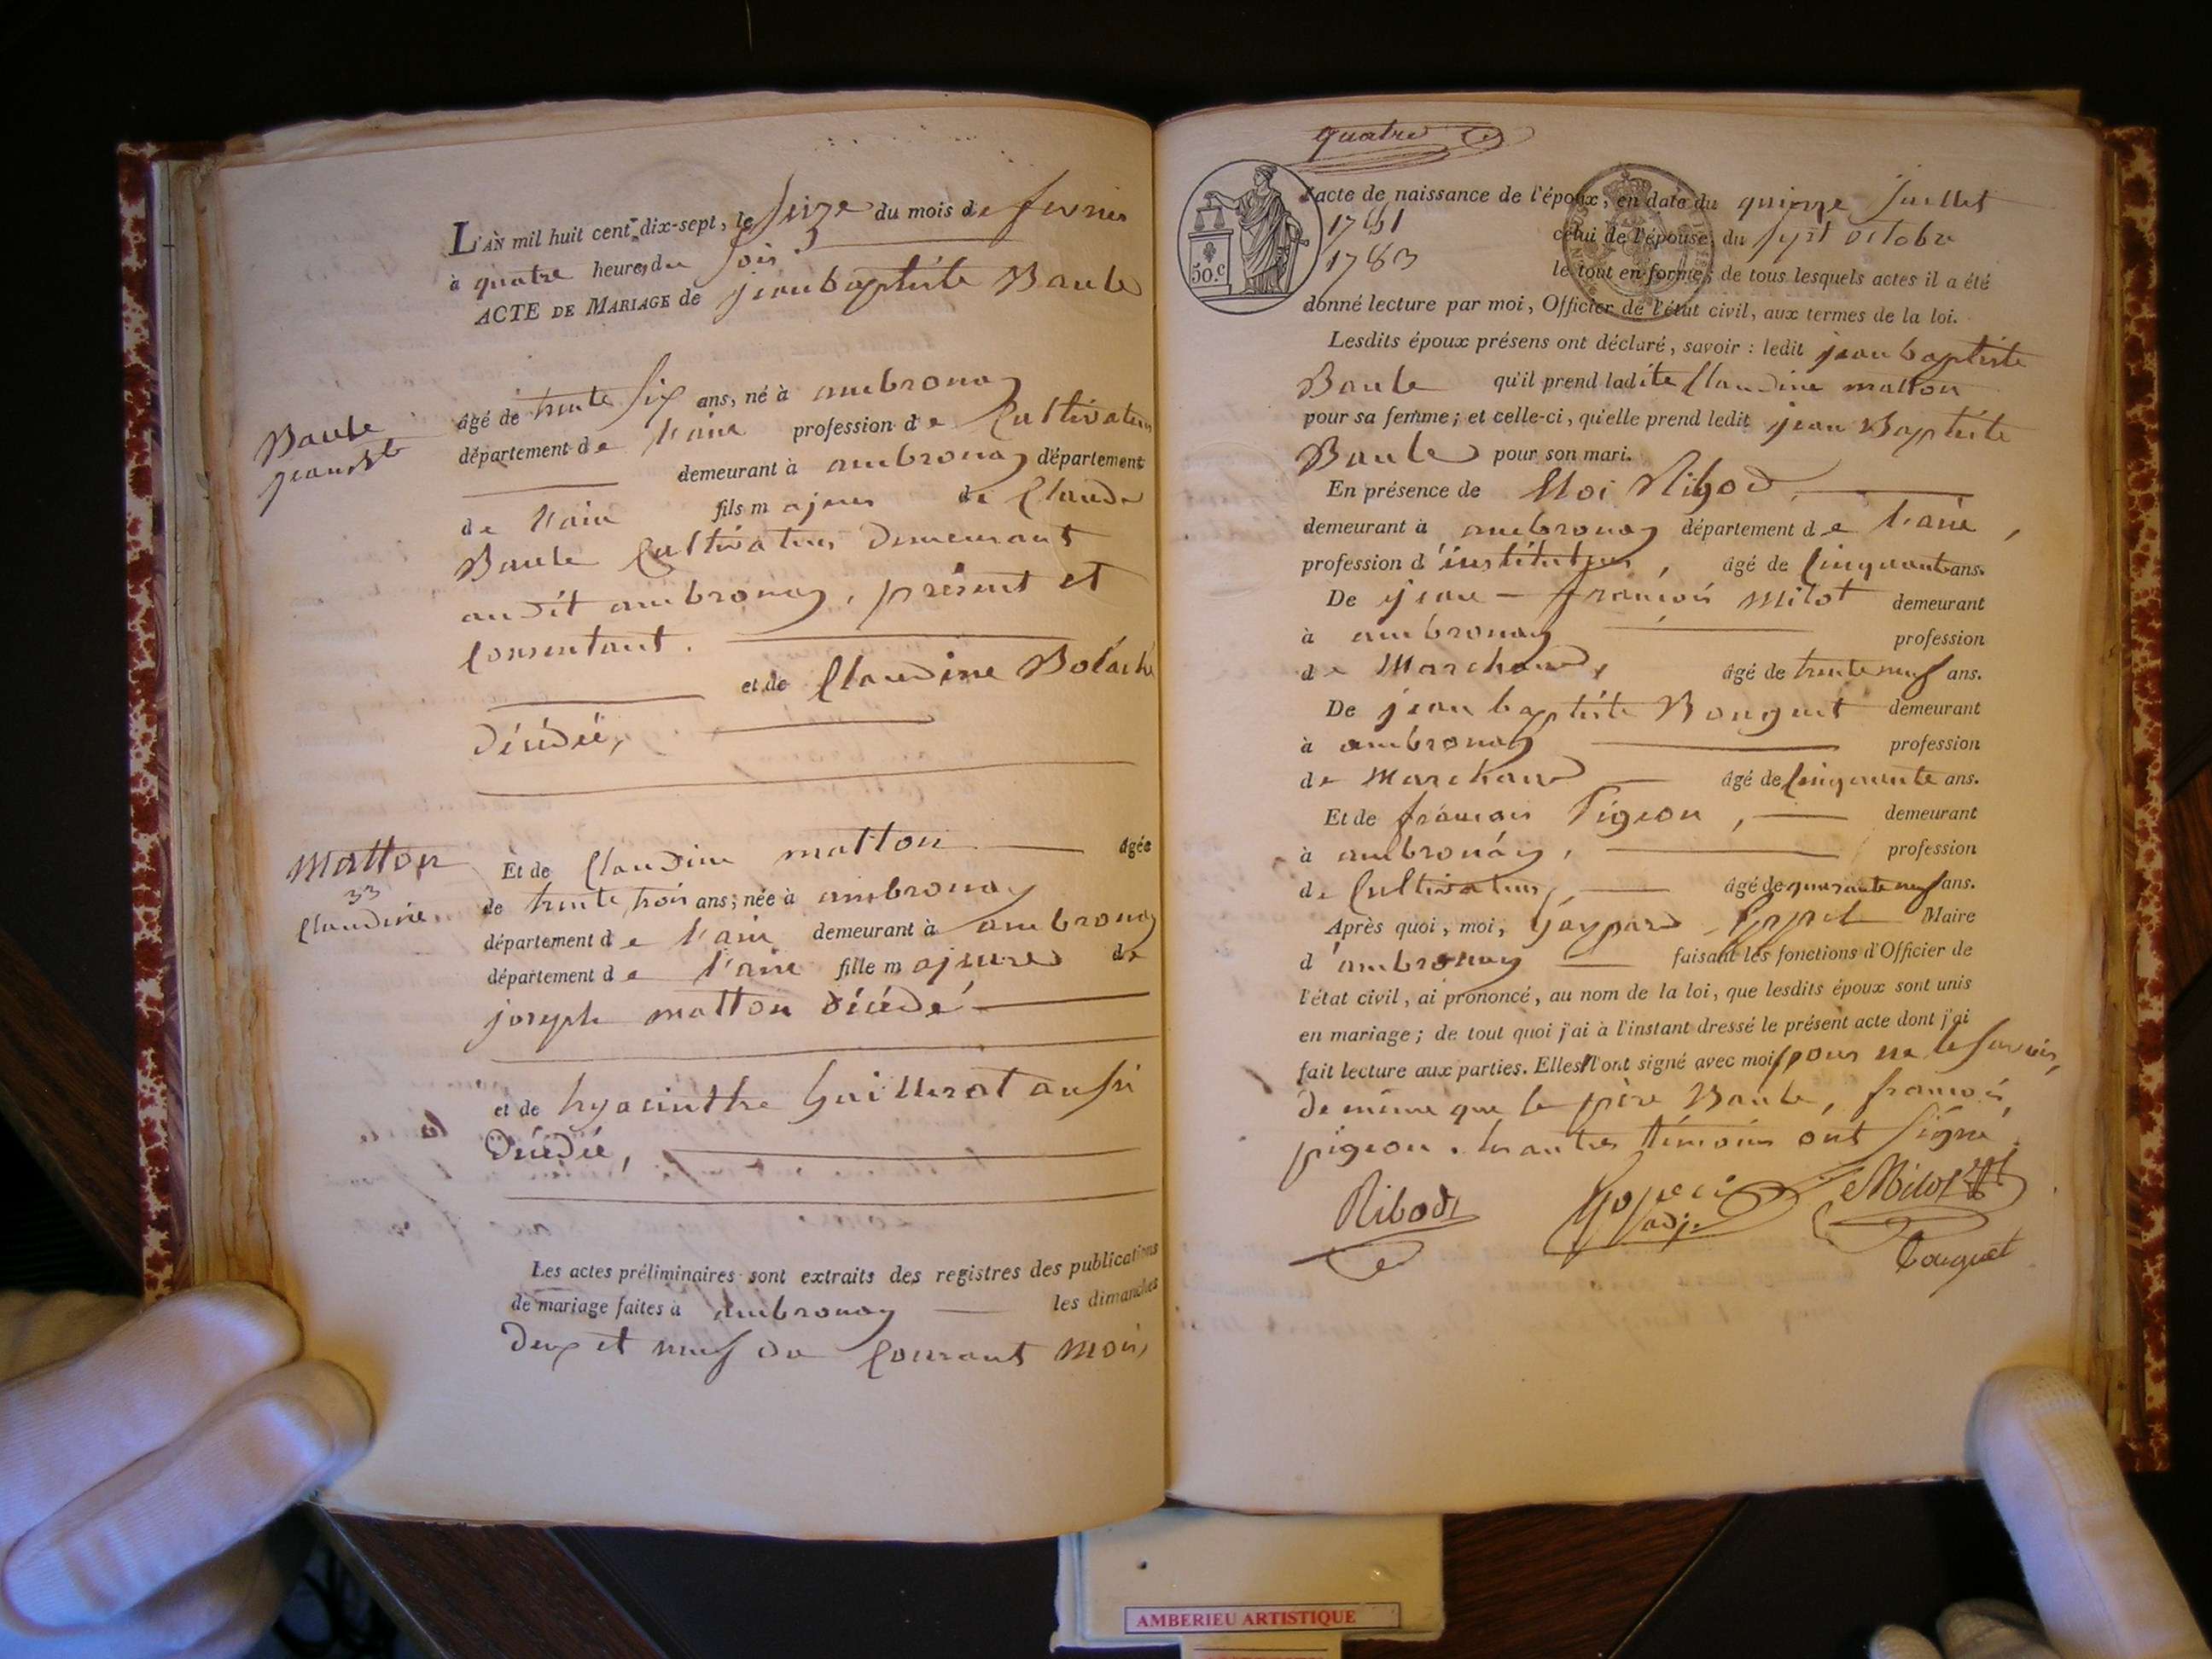 L'AN mil huit cent dix-sept, le seize du mois de fevrier
à quatre heures du soir
ACTE DE MARIAGE de jean baptiste Baule
Baule
jean Bte
âgé de trente six ans, né à ambronay
département de l'ain profession de Cultivateur
demeurant à ambronay département
de l'ain fils majeur de Claude
Baule Cultivateur demeurant
audit ambronay, présent et
Consentant.
et de Claudine Bolache
décédée,
Matton
33
Claudine
Et de Claudine matton âgée
de trente trois ans; née à ambronay
département de l'ain demeurant à ambronay
département de l'ain fille majeure de
joseph matton décédé
et de hyacinthe Guillerot aussi
décédée,
Les actes préliminaires sont extraits des registres des publications
de mariage faites à ambronay les dimanches
deux et neuf du Courant mois,
quatre
50.c
l'acte de naissance de l'époux, en date du quinze juillet
1781 celui de l'épouse, du sept octobre
1783 le tout en forme; de tous lesquels actes il a été
donné lecture par moi, Officier de l'état civil, aux termes de la loi.
Lesdits époux présens ont déclaré, savoir : ledit jean baptiste
Baule qu'il prend ladite Claudine matton
pour sa femme; et celle-ci, qu'elle prend ledit jean Baptiste
Baule pour son mari.
En présence de Eloi Ribod,
demeurant à ambronay département de l'ain,
profession d'instituteur, âgé de Cinquante ans.
De jean-françois Milot demeurant
à ambronay profession
de Marchand, âgé de trente neuf ans.
De jean baptiste Bouguet demeurant
à ambronay profession
de Marchand âgé de Cinquante ans.
Et de françois Pigeon, demeurant
à ambronay, profession
de Cultivateur, âgé de quarante neuf ans.
Après quoi, moi, Gaspard Maire
d'ambronay faisant les fonctions d'Officier de
l'état civil, ai prononcé, au nom de la loi, que lesdits époux sont unis
en mariage; de tout quoi j'ai à l'instant dressé le présent acte dont j'ai
fait lecture aux parties. Elles l'ont signé avec moi pour ne le savoir,
de même que le père Baule, françois,
pigeon. les autres témoins ont signé.
Ribod
adj.
Milot
Bouguet
AMBERIEU ARTISTIQUE